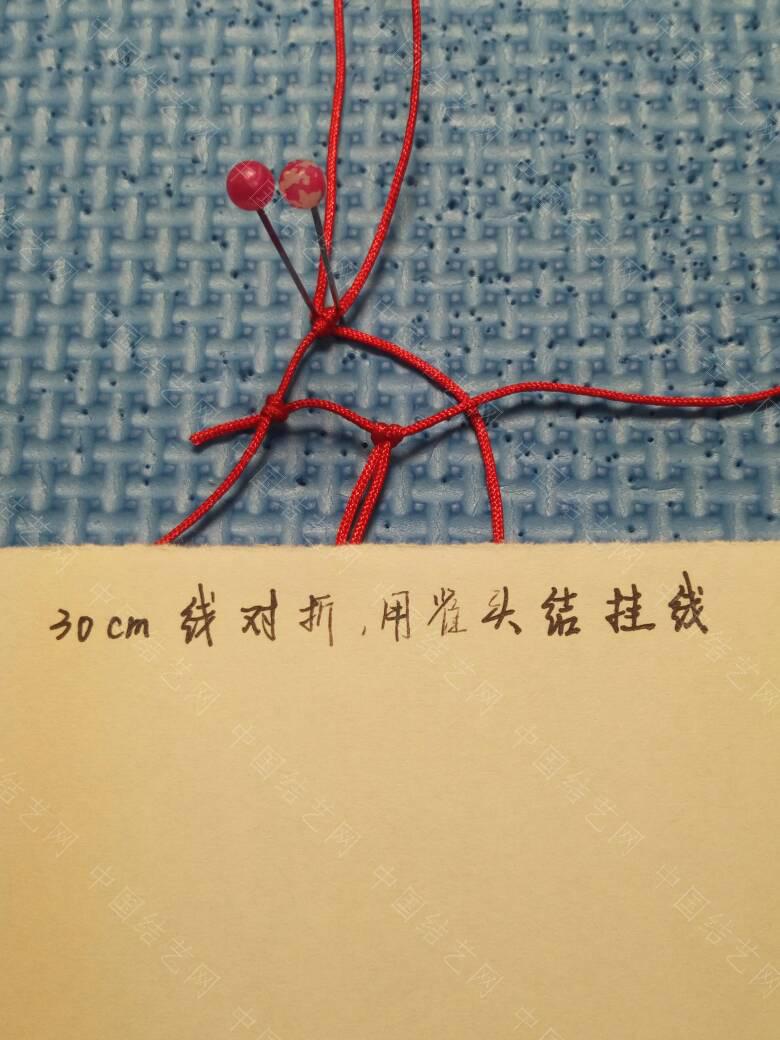 30cm 线对折,用雀头结挂线
中国结艺网